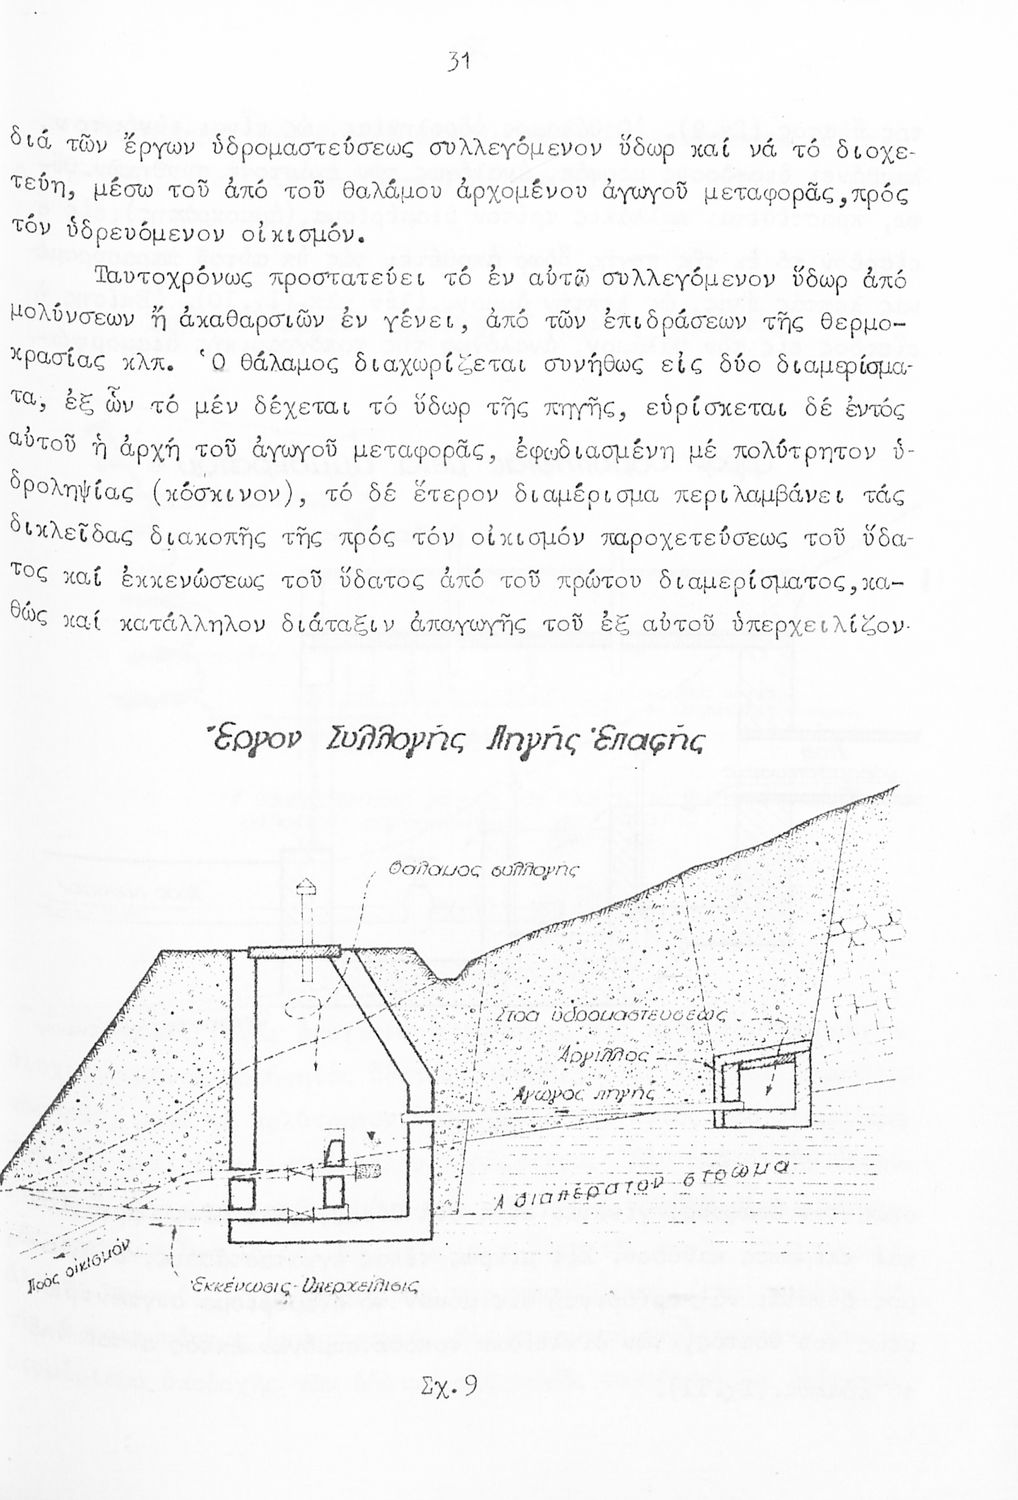 31
διά τῶν ἔργων ὑδρομαστεύσεως συλλεγόμενον ὕδωρ καί νά τό διοχε-
τεύη, μέσω τοῦ ἀπό τοῦ θαλάμου ἀρχομένου ἀγωγοῦ μεταφορᾶς,πρός
τόν ὑδρευόμενον οἰκισμόν.
Ταυτοχρόνως προστατεύει τό ἐν αὐτῶ συλλεγόμενον ὕδωρ ἀπό
μολύνσεων ἤ ἀκαθαρσιῶν ἐν γένει, ἀπό τῶν ἐπιδράσεων τῆς θερμο-
κρασίας κλπ. Ὁ θάλαμος διαχωρίζεται συνήθως εἰς δύο διαμερίσμα-
τα, ἐξ ὧν τό μέν δέχεται τό ὕδωρ τῆς πηγῆς, εὑρίσκεται δέ ἐντός
αὐτοῦ ἡ ἀρχή τοῦ ἀγωγοῦ μεταφορᾶς, ἐφωδιασμένη μέ πολύτρητον ὑ-
δροληψίας (κόσκινον), τό δέ ἕτερον διαμέρισμα περιλαμβάνει τάς
δικλεῖδας διακοπῆς τῆς πρός τόν οἰκισμόν παροχετεύσεως τοῦ ὕδα-
τος καί ἐκκενώσεως τοῦ ὕδατος ἀπό τοῦ πρώτου διαμερίσματος,κα-
θώς καί κατάλληλον διάταξιν ἀπαγωγῆς τοῦ ἐξ αὐτοῦ ὑπερχειλίζον-
Ἔργον Συλλογῆς Πηγῆς Ἐπαφῆς
Θάλαμος συλλογῆς
Στοά ὑδρομαστεύσεως
Ἄργιλλος
Ἀγωγός πηγῆς
Ἀδιαπέρατον στρῶμα
Πρός οἰκισμόν
Ἐκκένωσις-Ὑπερχείλισις
Σχ.9